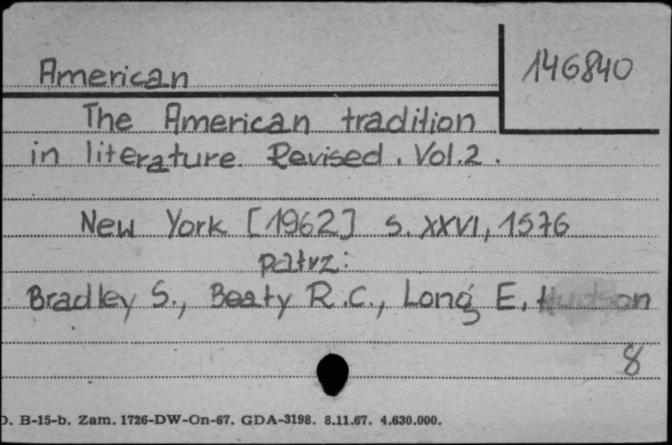 American
146840
The American tradition
in literature. Revised. Vol. 2.
New York [1962] s. XXVI, 1576
patrz:
Bradley S., Beaty R.C., Long E. Hudson
8
D. B-15-b. Zam. 1726-DW-On-67. GDA-3198. 8.11.67. 4.630.000.